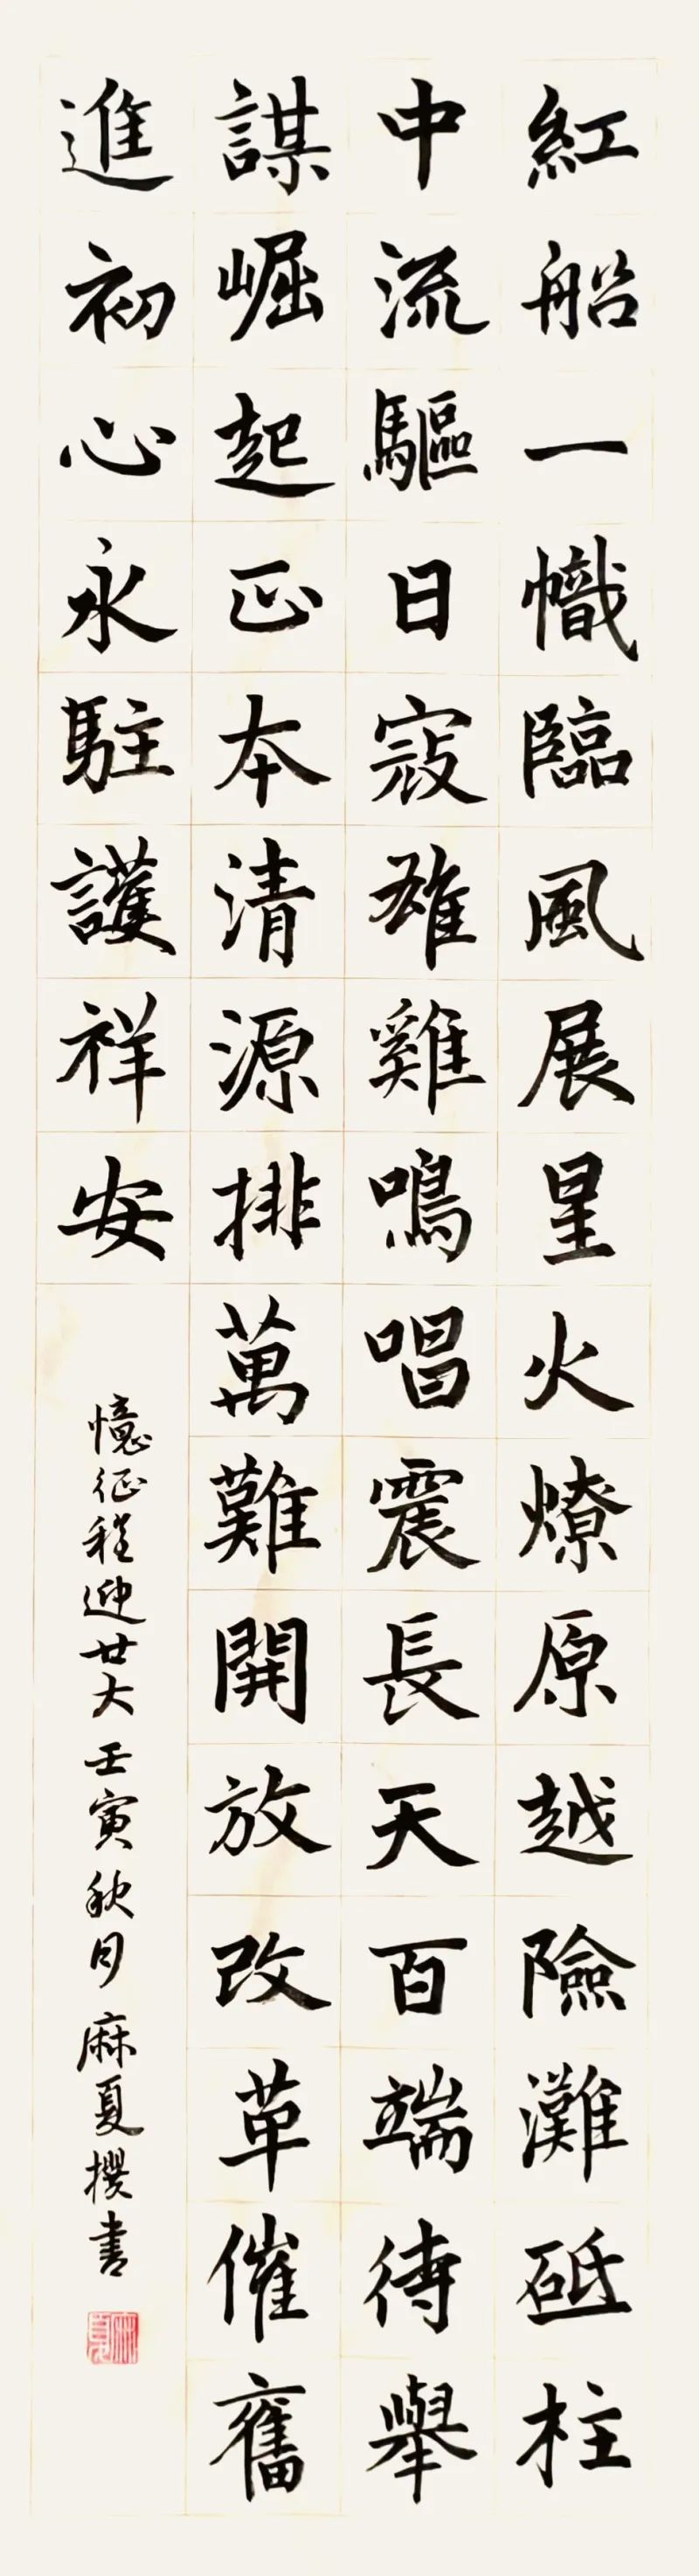 紅船一幟臨風展星火燎原越險灘砥柱
中流驅日寇雄雞鳴唱震長天百端待舉
謀崛起正本清源排萬難開放改革催奮
進初心永駐護祥安
憶征程迎廿大壬寅秋月麻夏撰書